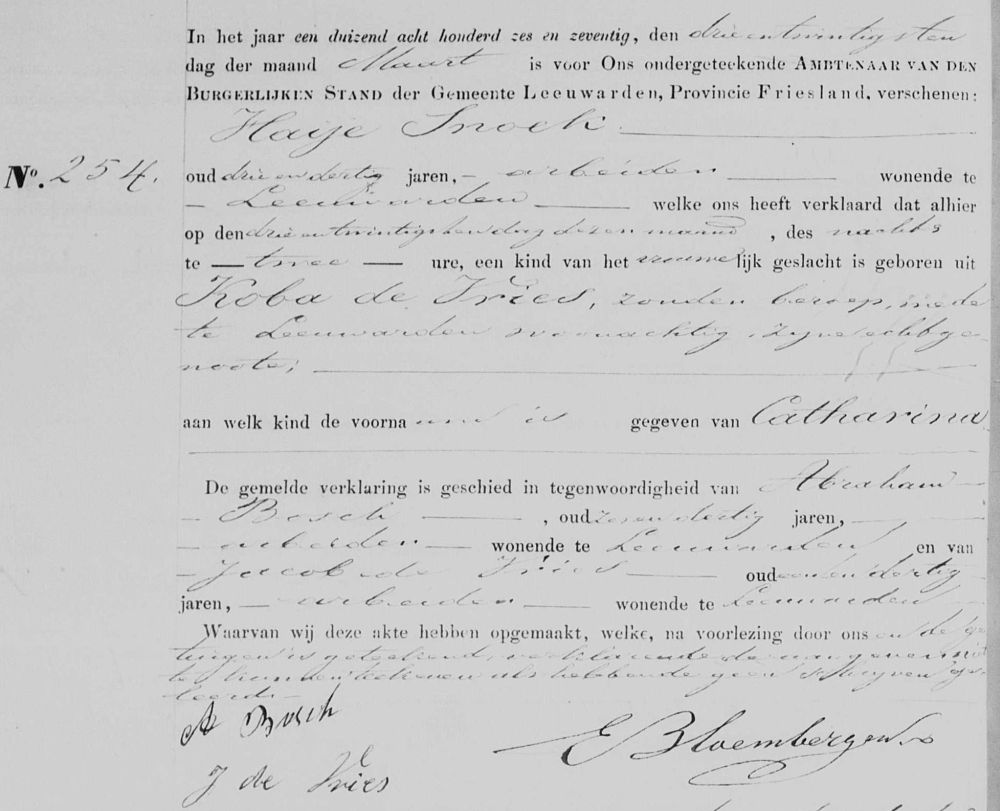 In het jaar een duizend acht honderd zes en zeventig, den drieentwintigsten
dag der maand Maart is voor Ons ondergeteekende AMBTENAAR VAN DEN
BURGERLIJKEN STAND der Gemeente Leeuwarden, Provincie Friesland, verschenen:
Haije Snoek
No. 254.
oud drieendertig jaren, arbeider wonende te
Leeuwarden welke ons heeft verklaard dat alhier
op den drieentwintigsten dag dezer maand, des nachts
te twee ure, een kind van het vrouwelijk geslacht is geboren uit
Koba de Vries, zonder beroep, mede
te Leeuwarden woonachtig, zijne echtge-
noote;
aan welk kind de voornaam is gegeven van Catharina
De gemelde verklaring is geschied in tegenwoordigheid van Abraham
Bosch, oud zesendertig jaren,
arbeider wonende te Leeuwarden en van
Jacob de Vries oud eenendertig
jaren, arbeider wonende te Leeuwarden
Waarvan wij deze akte hebben opgemaakt, welke, na voorlezing door ons en de ge-
tuigen is geteekend, verklarende de aangever niet
te kunnen teekenen als hebbende geen schrijven ge-
leerd.
A Bosch
E Bloembergen
J de Vries